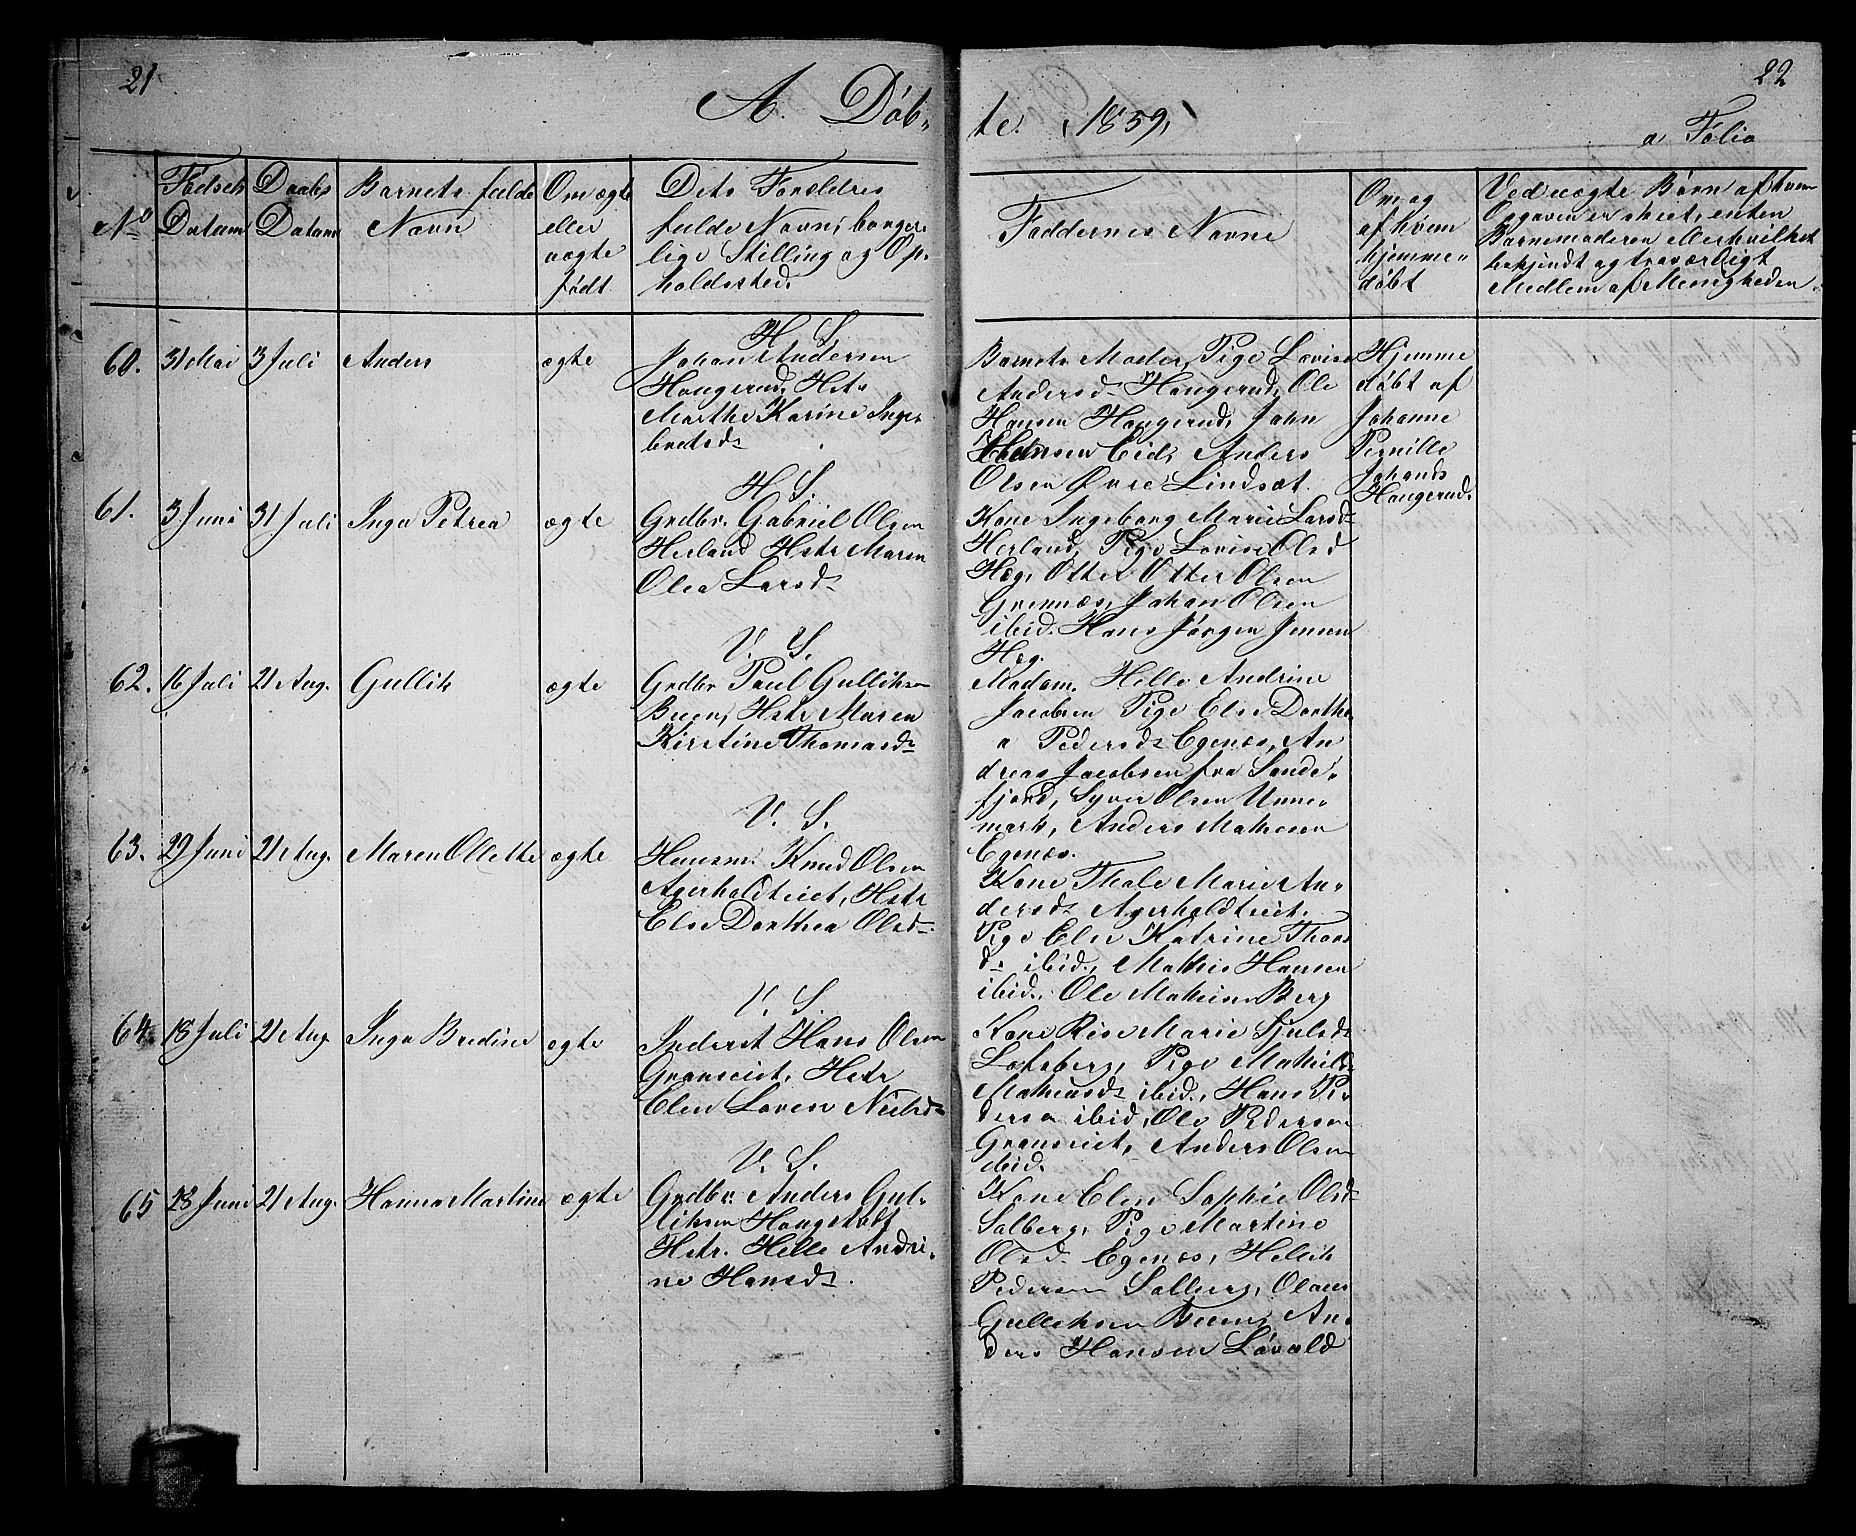 21
22
A. Döb-
te. 1859.
a Folio
No
Fødsels Datum
Daabs Datum
Barnets fulde Navn
Om ægte eller uægte født
Dets Forældres fulde Navn, borgerlige Stilling og Opholdssted.
Faddernes Navne
Om og af hvem hjemme-døbt
Ved uægte Børn af hvem Opgaven er skeet, enten Barnemoderen eller hvilket bekjendt og troværdigt Medlem af Menigheden.
60. 31 Mai 3 Juli Anders ægte
H. S.
Johan Andersen
Haugerud, Hstr
Marthe Karine Inge-
bretsd.
Barnets Moder, Pige Lovise
Andersd. Haugerud, Ole
Hansen Haugerud, John
Hansen Eid, Anders
Olsen Øvre Lindsæt.
Hjemme
døbt af
Johanne
Pernille
Johansd.
Haugerud.
61. 3 Juni 31 Juli Inga Petrea ægte
H. S.
Grdbr. Gabriel Olsen
Herland Hstr Maren
Olea Larsd.
Kone Ingeborg Marie Larsd.
Herland, Pige Lovise Olsd
Hæg, Otter Otter Olsen
Grennæs, Johan Olsen
ibid. Hans Jörgen Jensen
Hæg.
62. 16 Juli 21 Aug. Gullik ægte
V. S.
Grdbr Paul Gulliksen
Buen, Hstr Maren
Kirstine Thomasd.
Madam. Helle Andrine
Jacobsen Pige Else Dorthe
a Pedersd. Egenæs, An
dreas Jacobsen fra Sande-
fjord, Syver Olsen Unne-
mark, Anders Mathesen
Egenæs.
63. 29 Juni 21 Aug. Maren Ollette ægte
V. S.
Huusm. Knud Olsen
Agerholdteiet, Hstr
Else Dorthea Olsd.
Kone Thale Marie An-
dersd. Agerholdteiet.
Pige Else Katrine Thors
d. ibid., Mathis Hansen
ibid., Ole Mathisen Berg
64. 18 Juli 21 Aug. Inga Bredine ægte
V. S.
Inderst Hans Olsen
Granseiet, Hstr
Elen Loren Nielsd.
Kone Rise Marie Sjulsd.
Lofsberg, Pige Mathild
Matheusd. ibid., Hans Pe-
dersen ibid, Ole Pedersen
Granseiet, Anders Olsen
ibid.
65 28 Juni 21 Aug. Hanna Martine ægte
V. S.
Grdbr. Anders Gul-
liksen Haugstoft
Hstr. Helle Andri-
ne Hansd.
Kone Elen Sophie Olsd
Solberg, Pige Martine
Olsd. Egenæs, Hellik
Pedersen Solberg, Olaus
Gulliksen Buen, An-
ders Hansen Lövald